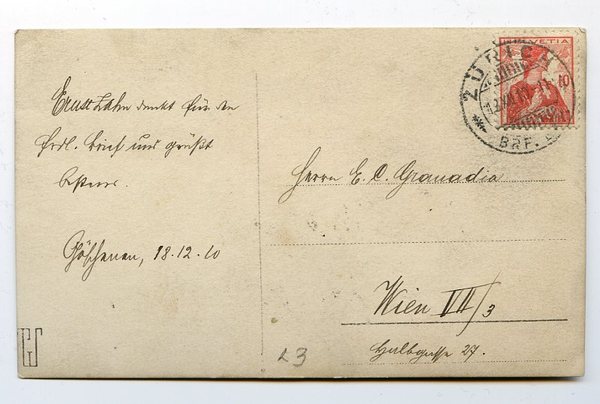 Ernst Zahn dankt für den
frdl. Brief und grüßt
bestens.
Göschenen, 18.12.10
HELVETIA
10
ZÜRICH
BRF.
Herrn E. C. Granadia
Wien VII/3
Halbgasse 27.
23